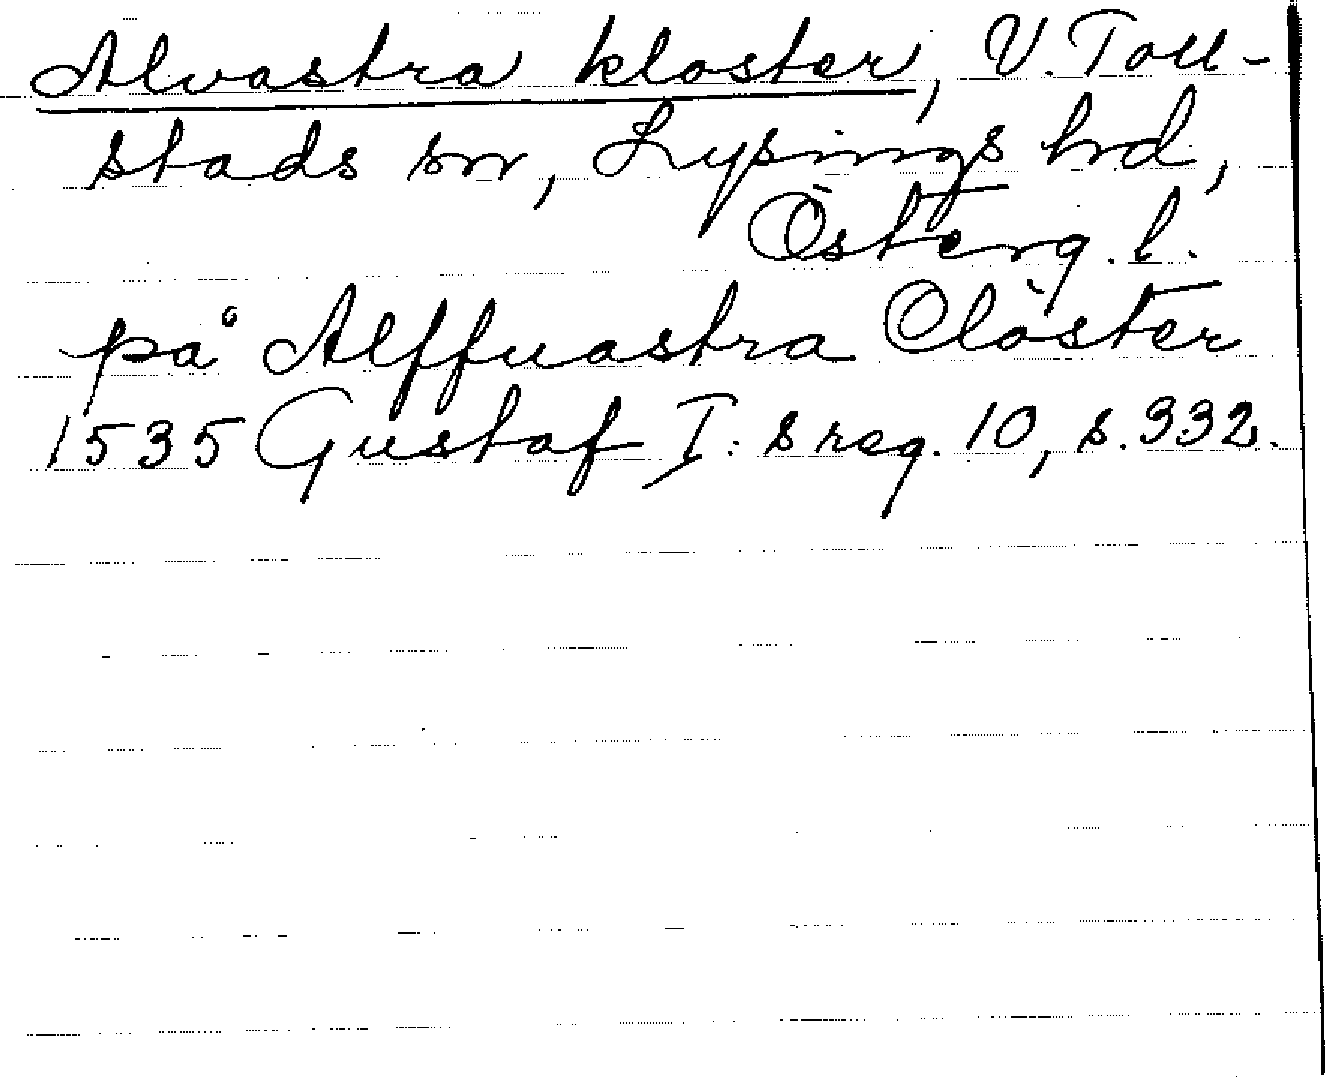 Alvastra kloster, V. Toll-
stads sn, Lysings hrd,
Österg. l.
på Alffuastra Clöster
1535 Gustaf I:s reg. 10, s. 332.